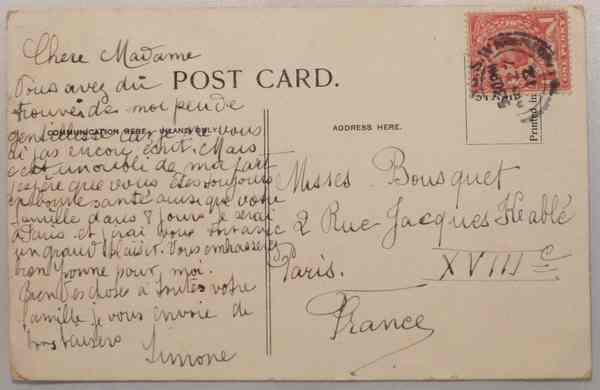 Chere Madame
Vous avez du
trouver de moi peu de
gentillesse car je ne vous
ai pas encore écrit. Mais
c'est un oubli de ma part
j'espère que vous êtes toujours
en bonne santé ainsi que votre
famille dans 8 jours je serai
à Paris et j'irai vous voir avec
un grand plaisir. Vous embrasserez
bien Yvonne pour moi.
Bien des choses à toute votre
famille je vous envoie de
bons baisers
Simone
POST CARD.
COMMUNICATION HERE. INLAND ONLY.
ADDRESS HERE.
Printed in
Misses Bousquet
2 Rue Jacques Keablé
Paris. XVIII e
France